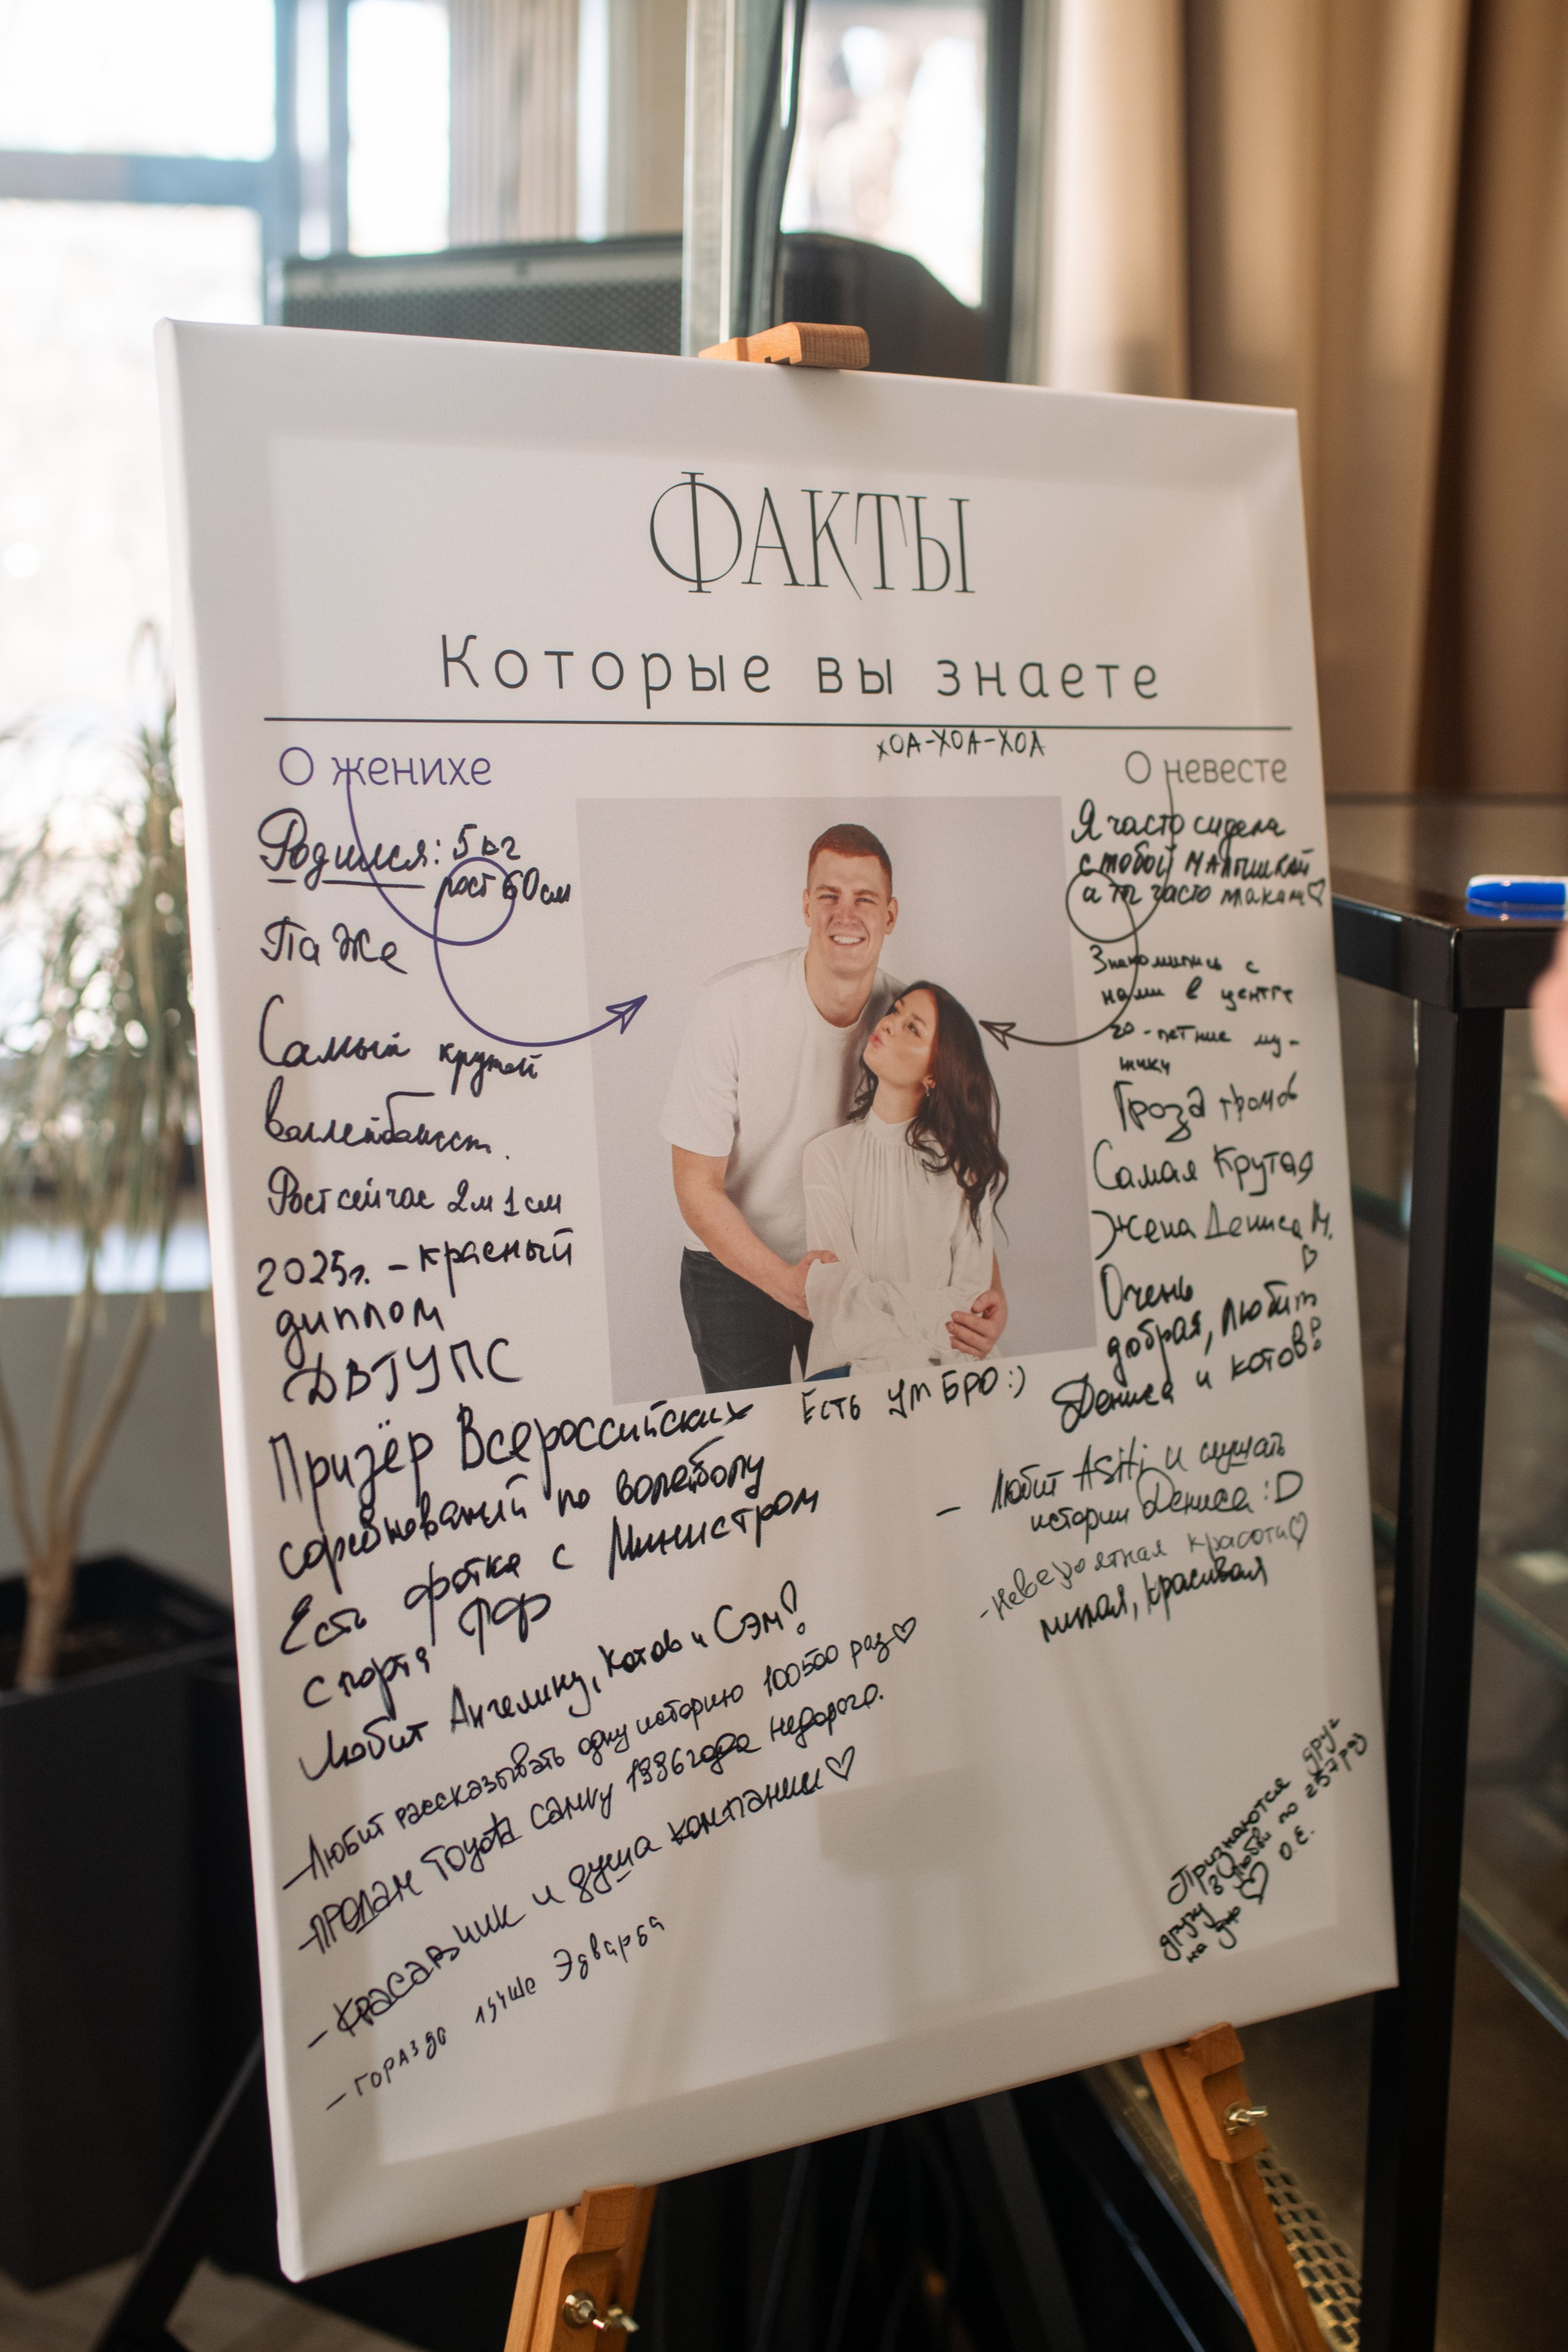 ФАКТЫ
Которые вы знаете
ХОА-ХОА-ХОА
О женихе
Родился: 5 кг
рост 60 см
Па же
Самый крутой
воллейболист.
Рост сейчас 2м 1 см
2025г. - красный
диплом
ДВГУПС
Призёр Всероссийских
соревнований по волейболу
Есть фотка с Министром
спорта РФ
Любит Ангелину, Котов и Сэм!
- Любит рассказывать одну историю 100500 раз♡
- ПРОДАМ Toyota CAMRY 1996 года недорого.
- Красавчик и душа компании♡
- гораздо лучше Эдварда
Есть ум БРО :)
О невесте
Я часто сидела
с тобой малышкой
а ты часто ♡
Знакомились с
нами в центре
20-летние му-
Гроза
Самая Крутая
Жена Дениса М.
♡
Очень
добрая, любит
Дениса и котов!
- Любит ASHi и слушать
истории Дениса :D
- невероятная красота♡
милая, красивая
Признаются друг
другу в любви по 257 раз
на дню ♡ О.Е.